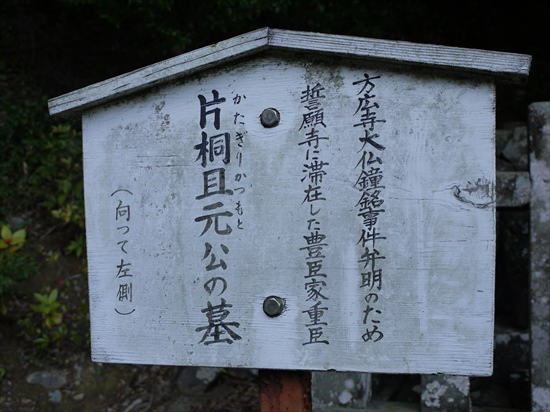 方広寺大仏鐘銘事件弁明のため
誓願寺に滞在した豊臣家重臣
かたぎりかつもと
片桐且元公の墓
（向って左側）